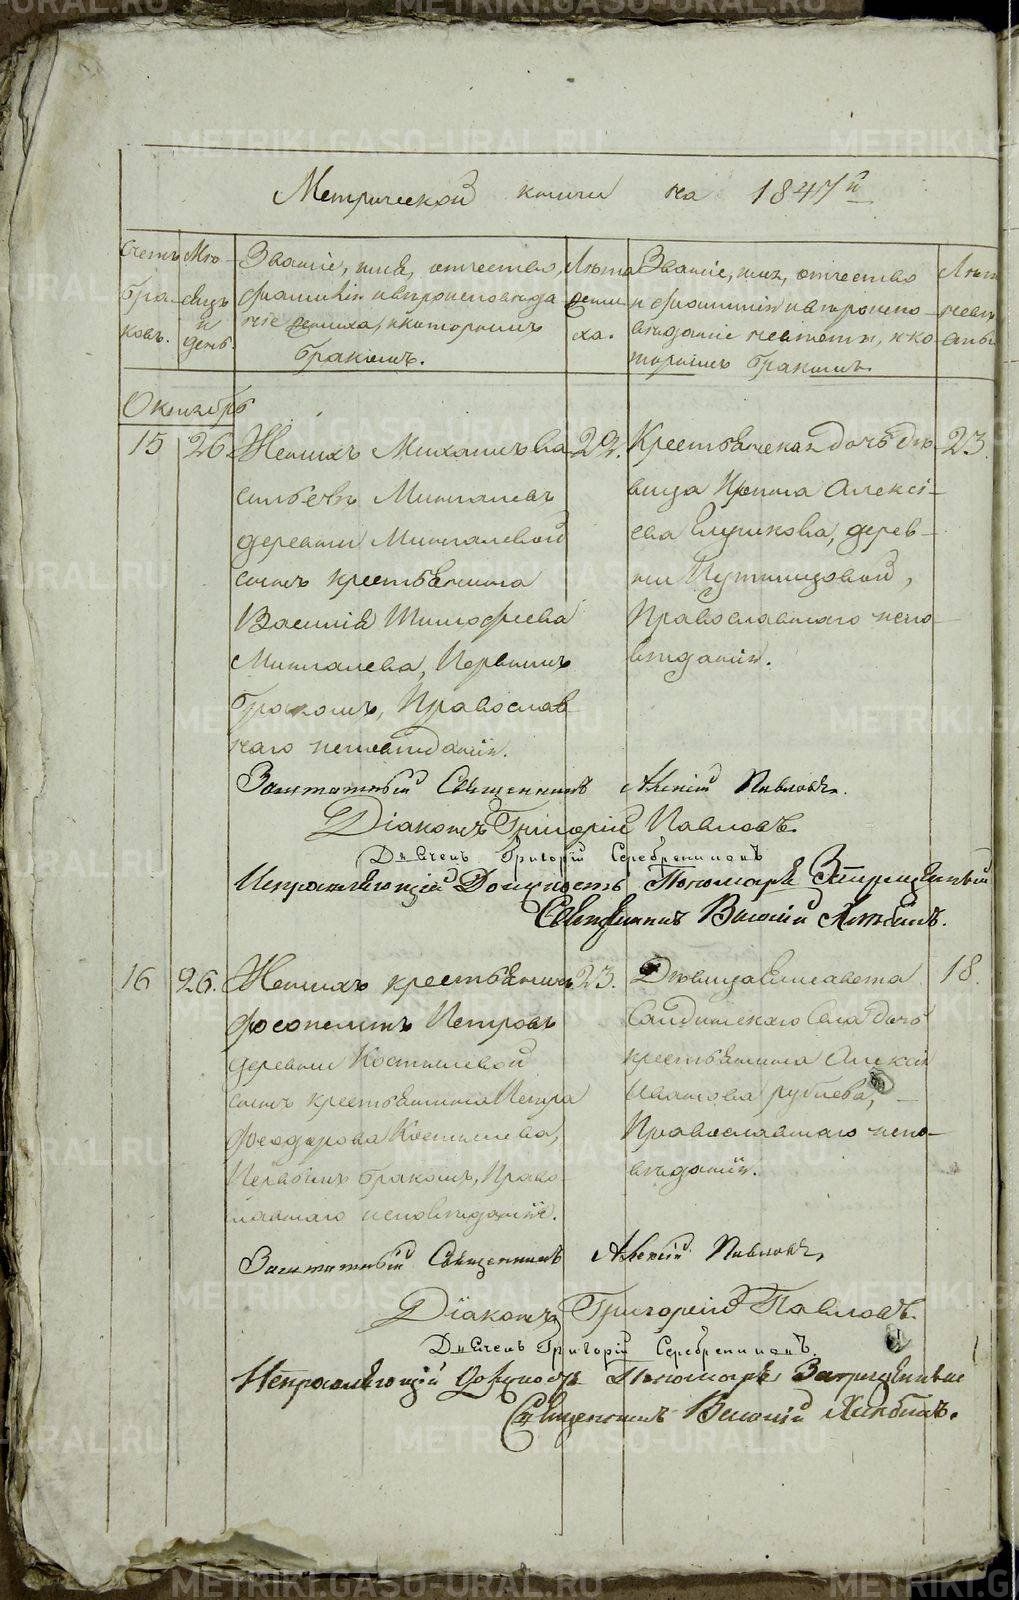 METRIKI.GASO-URAL.RU
Метрической книги на 1847й
Счетъ
бра-
ковъ.
Мѣ-
сяцъ
и
день.
Званіе, имя, отчество,
фамилія и вѣроисповѣда
ніе жениха, и которымъ
бракомъ.
Лѣта
жени
ха.
Званіе, имя, отчество
и фамилія и вѣроиспо-
вѣданіе невѣсты, и ко-
торымъ бракомъ.
Лѣт
невѣ
сты
Октябрь
15
26
Женихъ Михаилъ Ва
сильевъ
деревни
сынъ крестьянина
Василія Тимофѣева
Первымъ
бракомъ, Православ
наго исповѣданія.
22.
Крестьянская дочь дѣ
вица Ирина Алексі-
ева дерев-
ни
Православнаго испо-
вѣданія.
23.
Заштатный Священникъ Алексій Павловъ.
Діаконъ Григорій Павловъ.
Дьячекъ Григорій Серебрениковъ
Исправляющій Должность Пономаря Запрещенный
Священникъ Василій
16
26.
Женихъ крестьянинъ
Ѳеопемптъ Петровъ
деревни Костылевой
сынъ крестьянина Петра
Ѳеодорова Костылева,
Первымъ бракомъ, Право
славнаго исповѣданія.
23.
Дѣвица Елисавета
Села дочь
крестьянина Алексія
Иванова рублева,
Православнаго испо-
вѣданія.
18.
Заштатный Священникъ Алексій Павловъ,
Діаконъ Григорій Павловъ.
Дьячекъ Григорій Серебрениковъ.
Исправляющій Должность Пономаря Запрещенный
Священникъ Василій